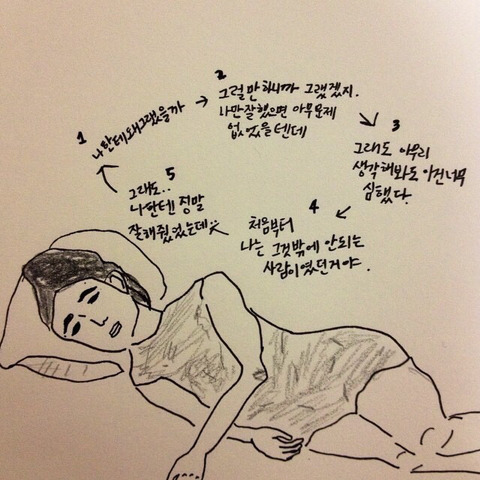 1
나한테 왜그랬을까
2
그럴만 하니까 그랬겠지.
나만 잘했으면 아무문제
없었을텐데
3
그래도 아무리
생각해봐도 이건너무
심했다.
4
처음부터
나는 그것밖에 안되는
사람이였던거야.
5
그래도..
나한텐 정말
잘해줬었는데